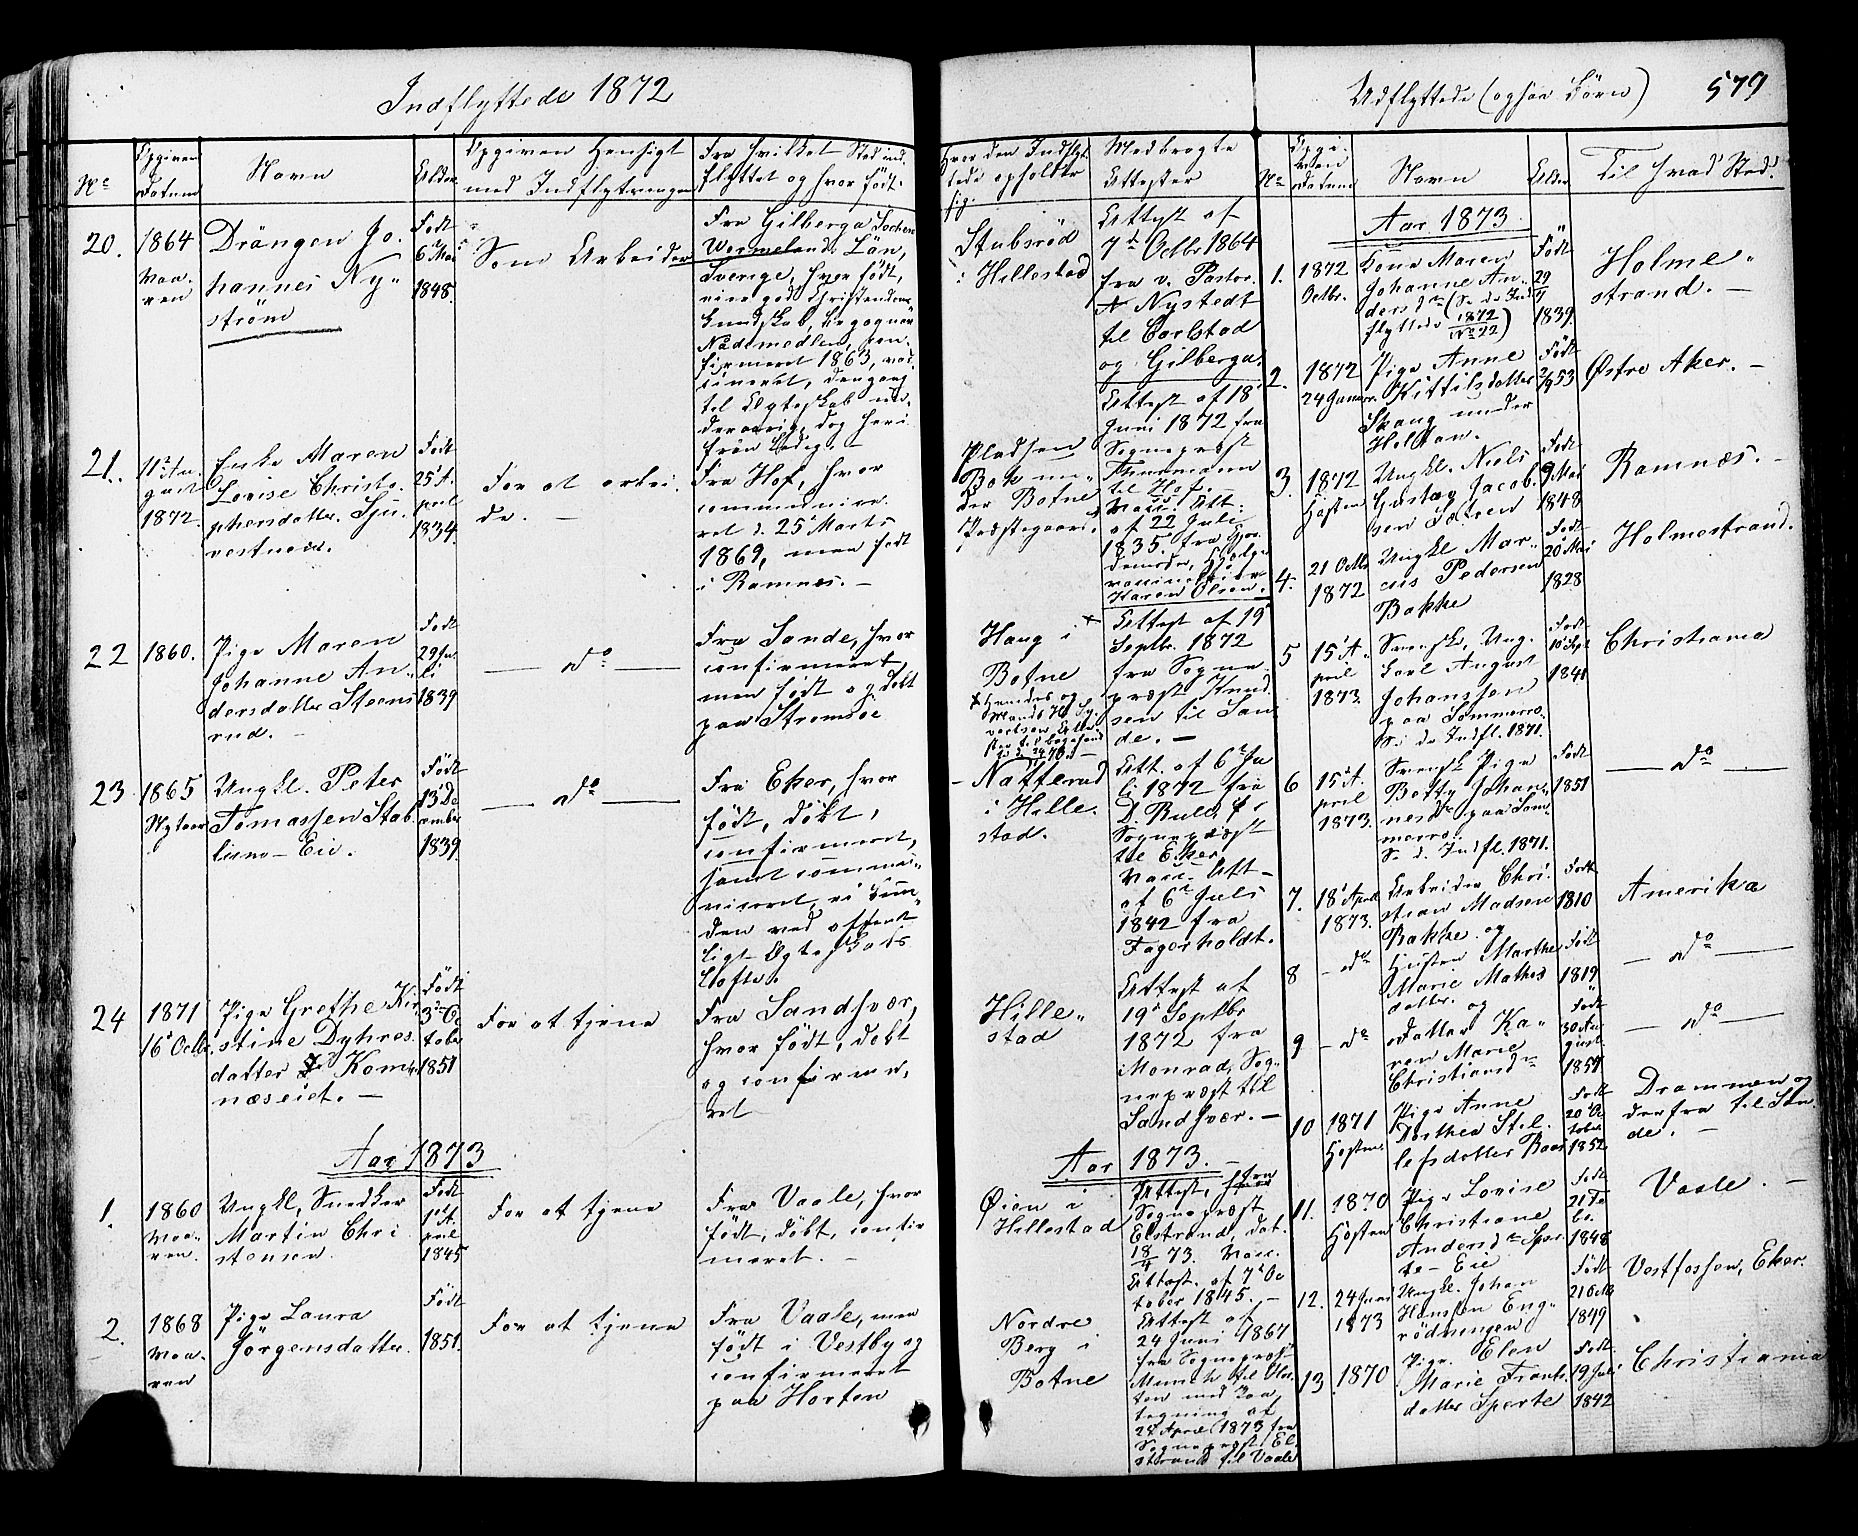 Indflyttede 1872
Udflyttede (ogsaa Børn)
579
No
Opgiven Datum
Navn
Alder
Opgiven Hensigt
med Indflytningen
Fra hvilket Sted ind
flyttet og hvor født.
Hvor den Indflyt
tede opholder
sig.
Medbragte
Attester
20.
1864
Vaa-
ren
Drängen Jo-
hannes Ny-
ström
Født
6 Mai
1848.
Som Arbeider
Fra Gilberga Sochen
Wermelands Län,
Sverige, hvor født,
Nademedlen, con-
firmeret 1863, vac
cineret,
til Ægteskab
Stubsröd
i Hillestad
Attest af
7d Octbr 1864
fra v. Pastor
A Nystedt
til Carlstad
og Gilberga.
21.
11te Au-
gust
1872.
Enke Maren
Lovise Christo-
phersdatter.
Født
25 A-
pril
1834.
For at arbei-
de. -
Fra Hof, hvor
communice-
ret d. 25 Marts
1869, men født
i Ramnæs. -
Pladsen
Bok un-
der Botne
Præstegaard
Attest af 18
Juni 1872 fra
Sognepræst
til Hof. -
Vacc: Att:
af 22 Juli
1835 fra
Karen Olsen.
22
1860.
Pige Maren
Johanne An-
dersdatter Steens
rud. -
Født
29 Ju-
li
1839
- do -
Fra Sande, hvor
confirmeret,
men født og døbt
paa Strømsøe
Haug i x
Botne
x Hendes og
Attest af 19
Septbr. 1872
fra Sogne-
præst Knud
sen til San
de. -
23
1865
Nytaar
Ungkl. Peter
Tomassen Stab
lum - Eie.
Født
13 De
cember
1839
- do -
Fra Eker, hvor
født, døbt,
confirmeret,
samt commu-
niceret,
den ved offent
ligt Ægteskabs
Løfte.
- Natterud
i Hille-
stad.
Att. af 6te Ju
li 1872 fra
D. Bull,
Sognepræst
til Eker
Vacc. Att -
af 6te Juli
1842 fra
Fagerholdt.
24
1871
16 Octbr.
Pige Grethe Kir-
stine Dyhres-
datter Kom-
næseiet. -
Født
3 Oc
tober
1851
For at tjene
Fra Sandsvær,
hvor født, døbt
og confirme-
ret
Hille-
stad
Attest af
19 Septbr
1872 fra
Monrad, Sog-
nepræst til
Sandsvær. -
Aar 1873
1.
1860
Vaa-
ren
Ungkl, Snedker
Martin Chri
stensen.
Født
1 A-
pril
1845
For at tjene
Fra Vaale, hvor
født, døbt, confir
meret. -
Aar 1873. -
Øien i
Hillestad
Attest, fra
Sognepræst
Elstrand, dat.
18/4 73. Vacc.
Attest. af 7 Oc
tober 1845. -
2.
1868
Vaa-
ren
Pige Laura
Jörgensdatter.
Født
1851.
For at tjene
Fra Vaale, men
født i Vestby og
confirmeret
paa Horten
Nordre
Berg i
Botne
Attest af
24 Juni 1867
fra Sognepræst
Munch til Hor-
ten med Paa
tegning af
28 April 1873 fra
Sognepræst El-
strand til Vaale
No
Opgi-
ven
Datum
Navn
Alder
Til hvad Sted.
Aar 1873.
1.
1872
Octbr.
Kone Maren
Johanne An-
dersdr (S. d. Ind
flyttede 1872/No 22)
Født
29/7
1839.
Holme-
strand. -
2.
1872
24 Januar.
Pige Anne
Kittilsdatter
Skaug under
Holtan.
Født
2/9 53
Østre Aker. -
3.
1872
Høsten
Ungkl. Niels
Gustav Jacob-
sen Sætren
Født
9 Mai
1848
Ramnæs. -
4.
21 Octbr
1872
Ungkl Mar-
cus Pedersen
Bakke
Født
20 Mai
1828
Holmestrand.
5
15 A-
pril
1873.
Svensk, Ung.
Carl August
Johansson
paa Sommerro.
S. d. Indfl. 1871.
Født
10 Sept
1841
Christiania
6
15 A-
pril
1873.
Svensk Pige
Betty Johan-
nesdr paa Som-
merro.
S. d. Indfl. 1871.
Født
1851
- do -
7.
18 April
1873.
Arbeider Chri-
stian Madsen
Bakke og
Født
1810
Amerika
8
- do
Hustru Marthe
Marie Mathis
datter. og
Født
1819
- do -
9
- do
Datter Ka-
ren Marie
Christiansdr
Født
30 Au
gust
1854
- do -
10
1871
Høsten.
Pige Anne
Dorthea Stil-
lefsdatter Raas
Født
20 Oc
tober
1852
Drammen og
derfra til San
de. -
11.
1870
Høsten
Pige Lovise
Christiane
Andersdr Spær-
te - Eie
Født
21 Fe
br.
1848
Vaale. -
12.
24 Juni
1873
Ungkl. Johan
Hansen Eng-
rödningen
Født
21 Octbr
1849
Vestfossen, Eker.
13
1870
Pige. Elen
Marie Frants-
datter Sperte
Født
19 Juli
1842
Christiania